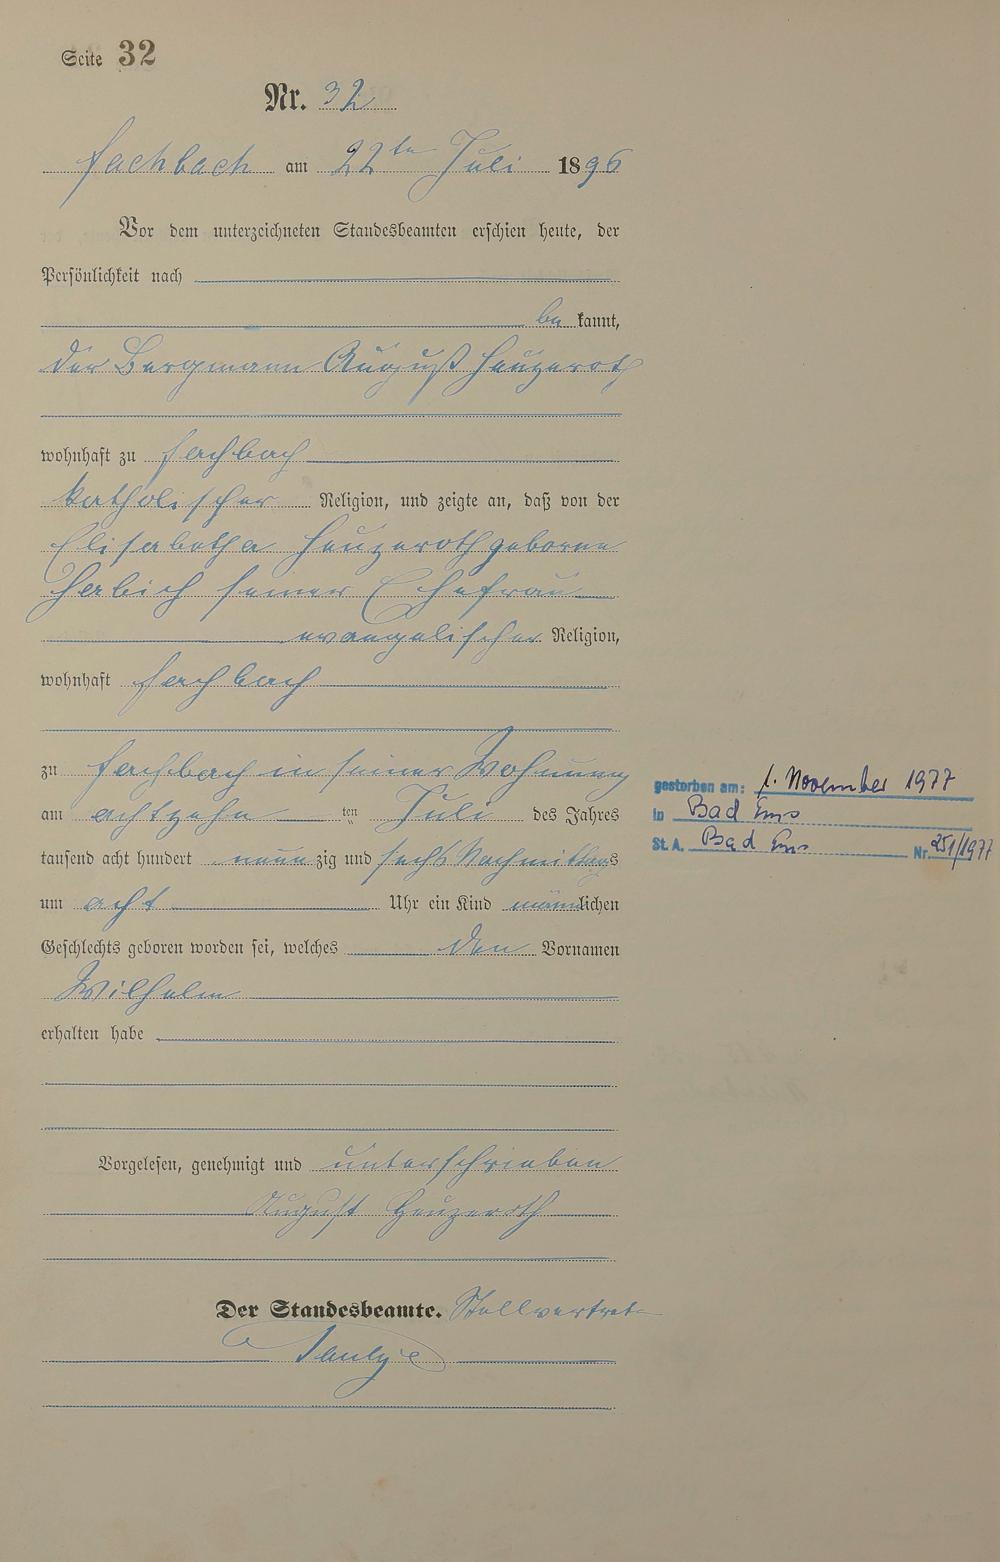 Seite 32
Nr. 32
Fachbach am 22ten Juli 1896
Vor dem unterzeichneten Standesbeamten erschien heute, der
Persönlichkeit nach
be kannt,
der Bergmann August Heuzeroth
wohnhaft zu Fachbach
katholischer Religion, und zeigte an, daß von der
Elisabetha Heuzeroth geborne
Herbich seiner Ehefrau
evangelischer Religion,
wohnhaft Fachbach
zu Fachbach in seiner Wohnung
am achtzehn ten Juli des Jahres
tausend acht hundert neun zig und sechs Nachmittags
um acht Uhr ein Kind männlichen
Geschlechts geboren worden sei, welches den Vornamen
Wilhelm
erhalten habe
Vorgelesen, genehmigt und unterschrieben
August Heuzeroth
Der Standesbeamte. Stellvertreter
gestorben am: 1. November 1977
in Bad Ems
St. A. Bad Ems Nr. 251/1977